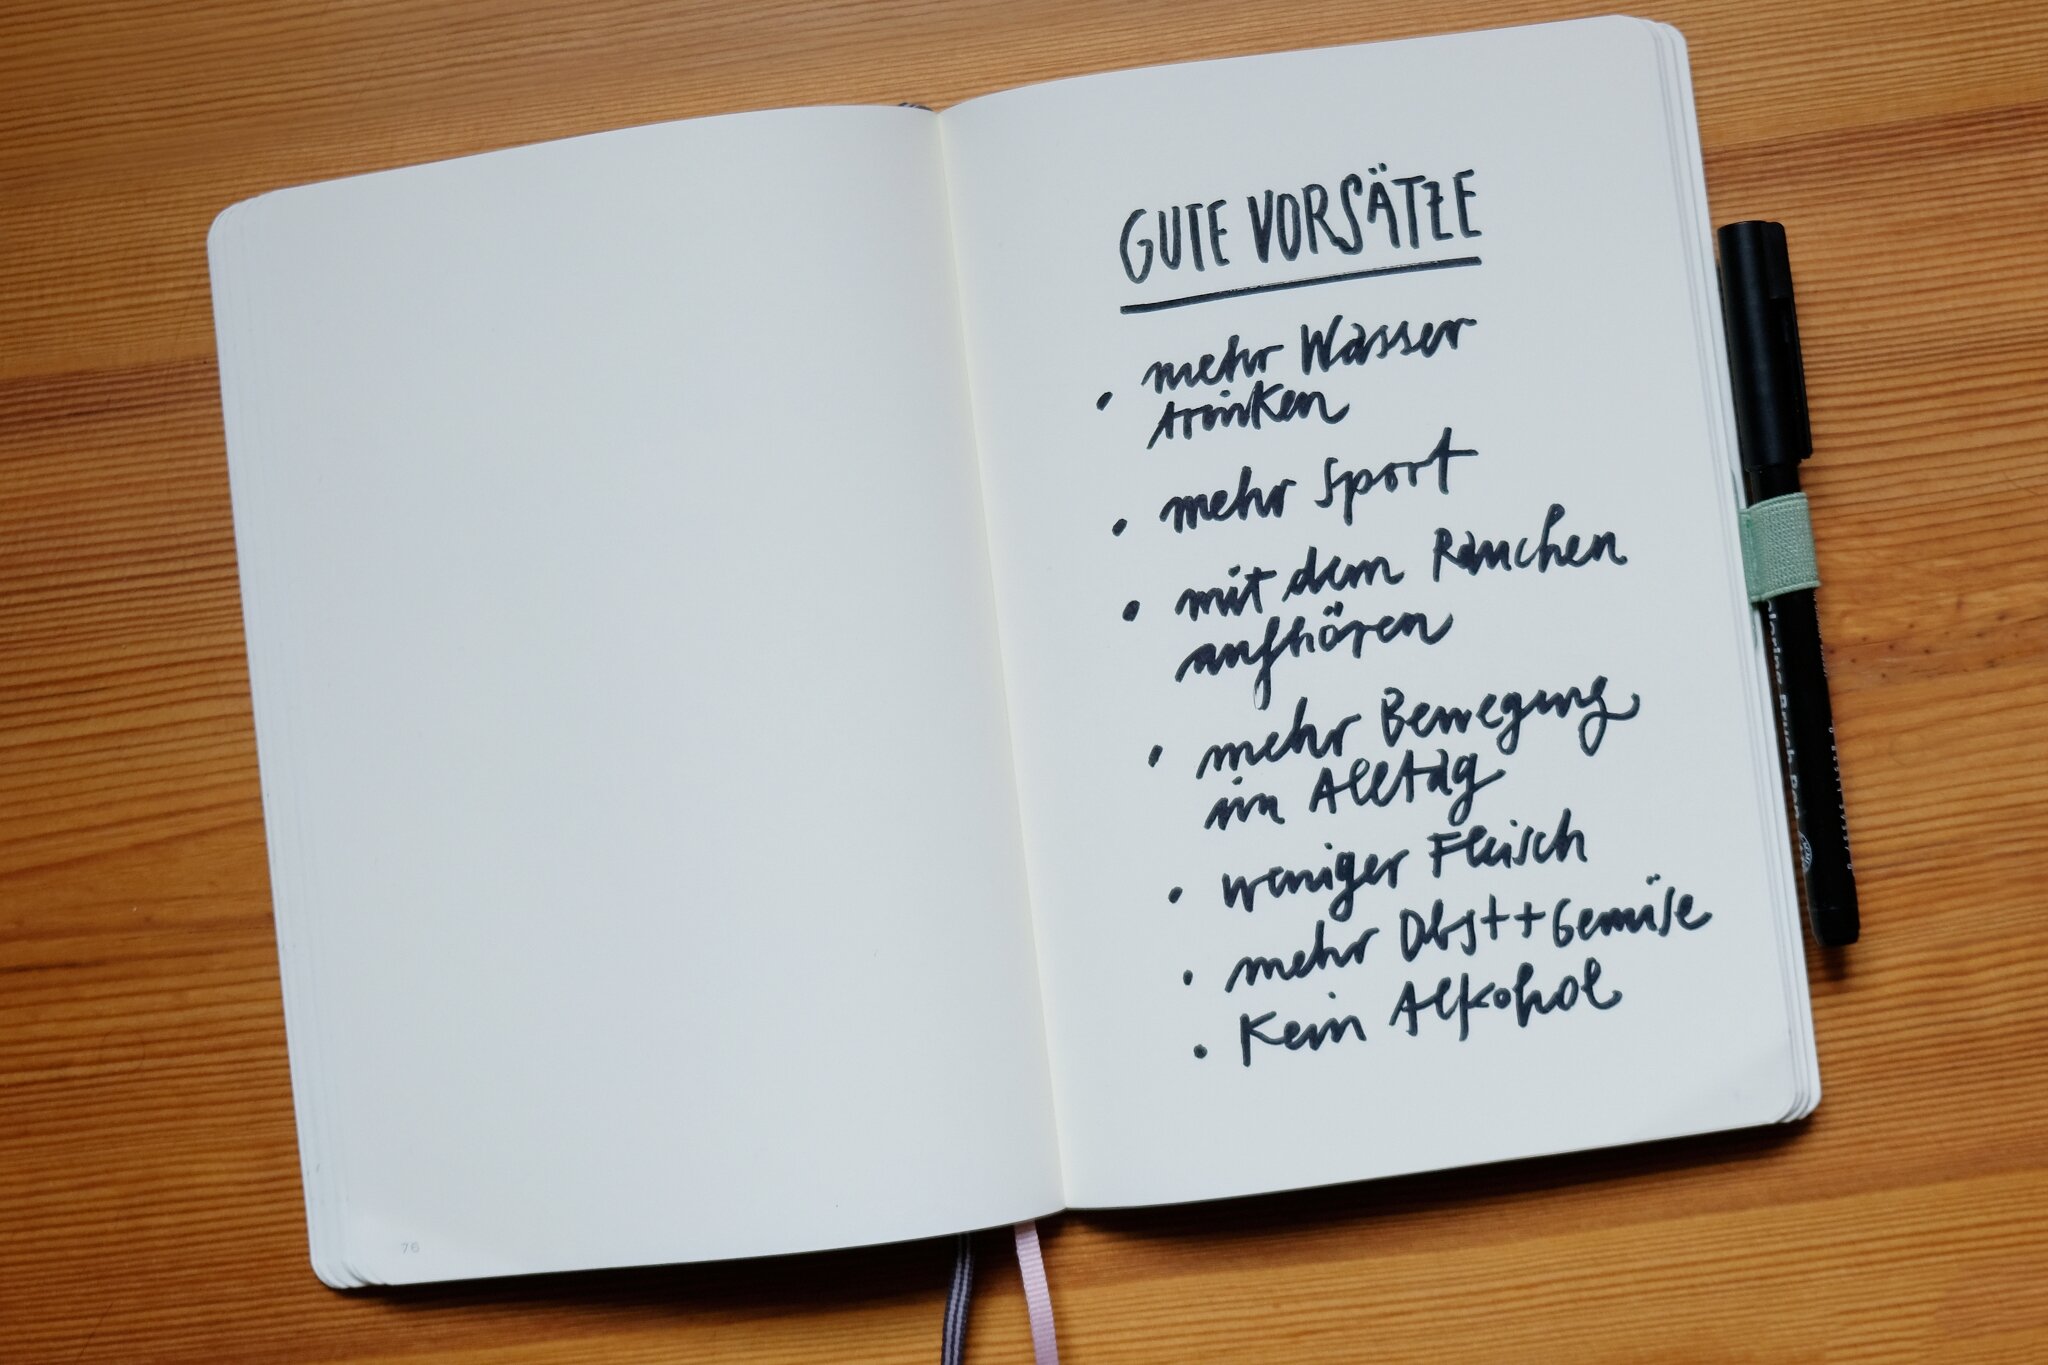 GUTE VORSÄTZE
• mehr Wasser
trinken
• mehr Sport
• mit dem Rauchen
aufhören
• mehr Bewegung
im Alltag
• weniger Fleisch
• mehr Obst + Gemüse
• Kein Alkohol
76